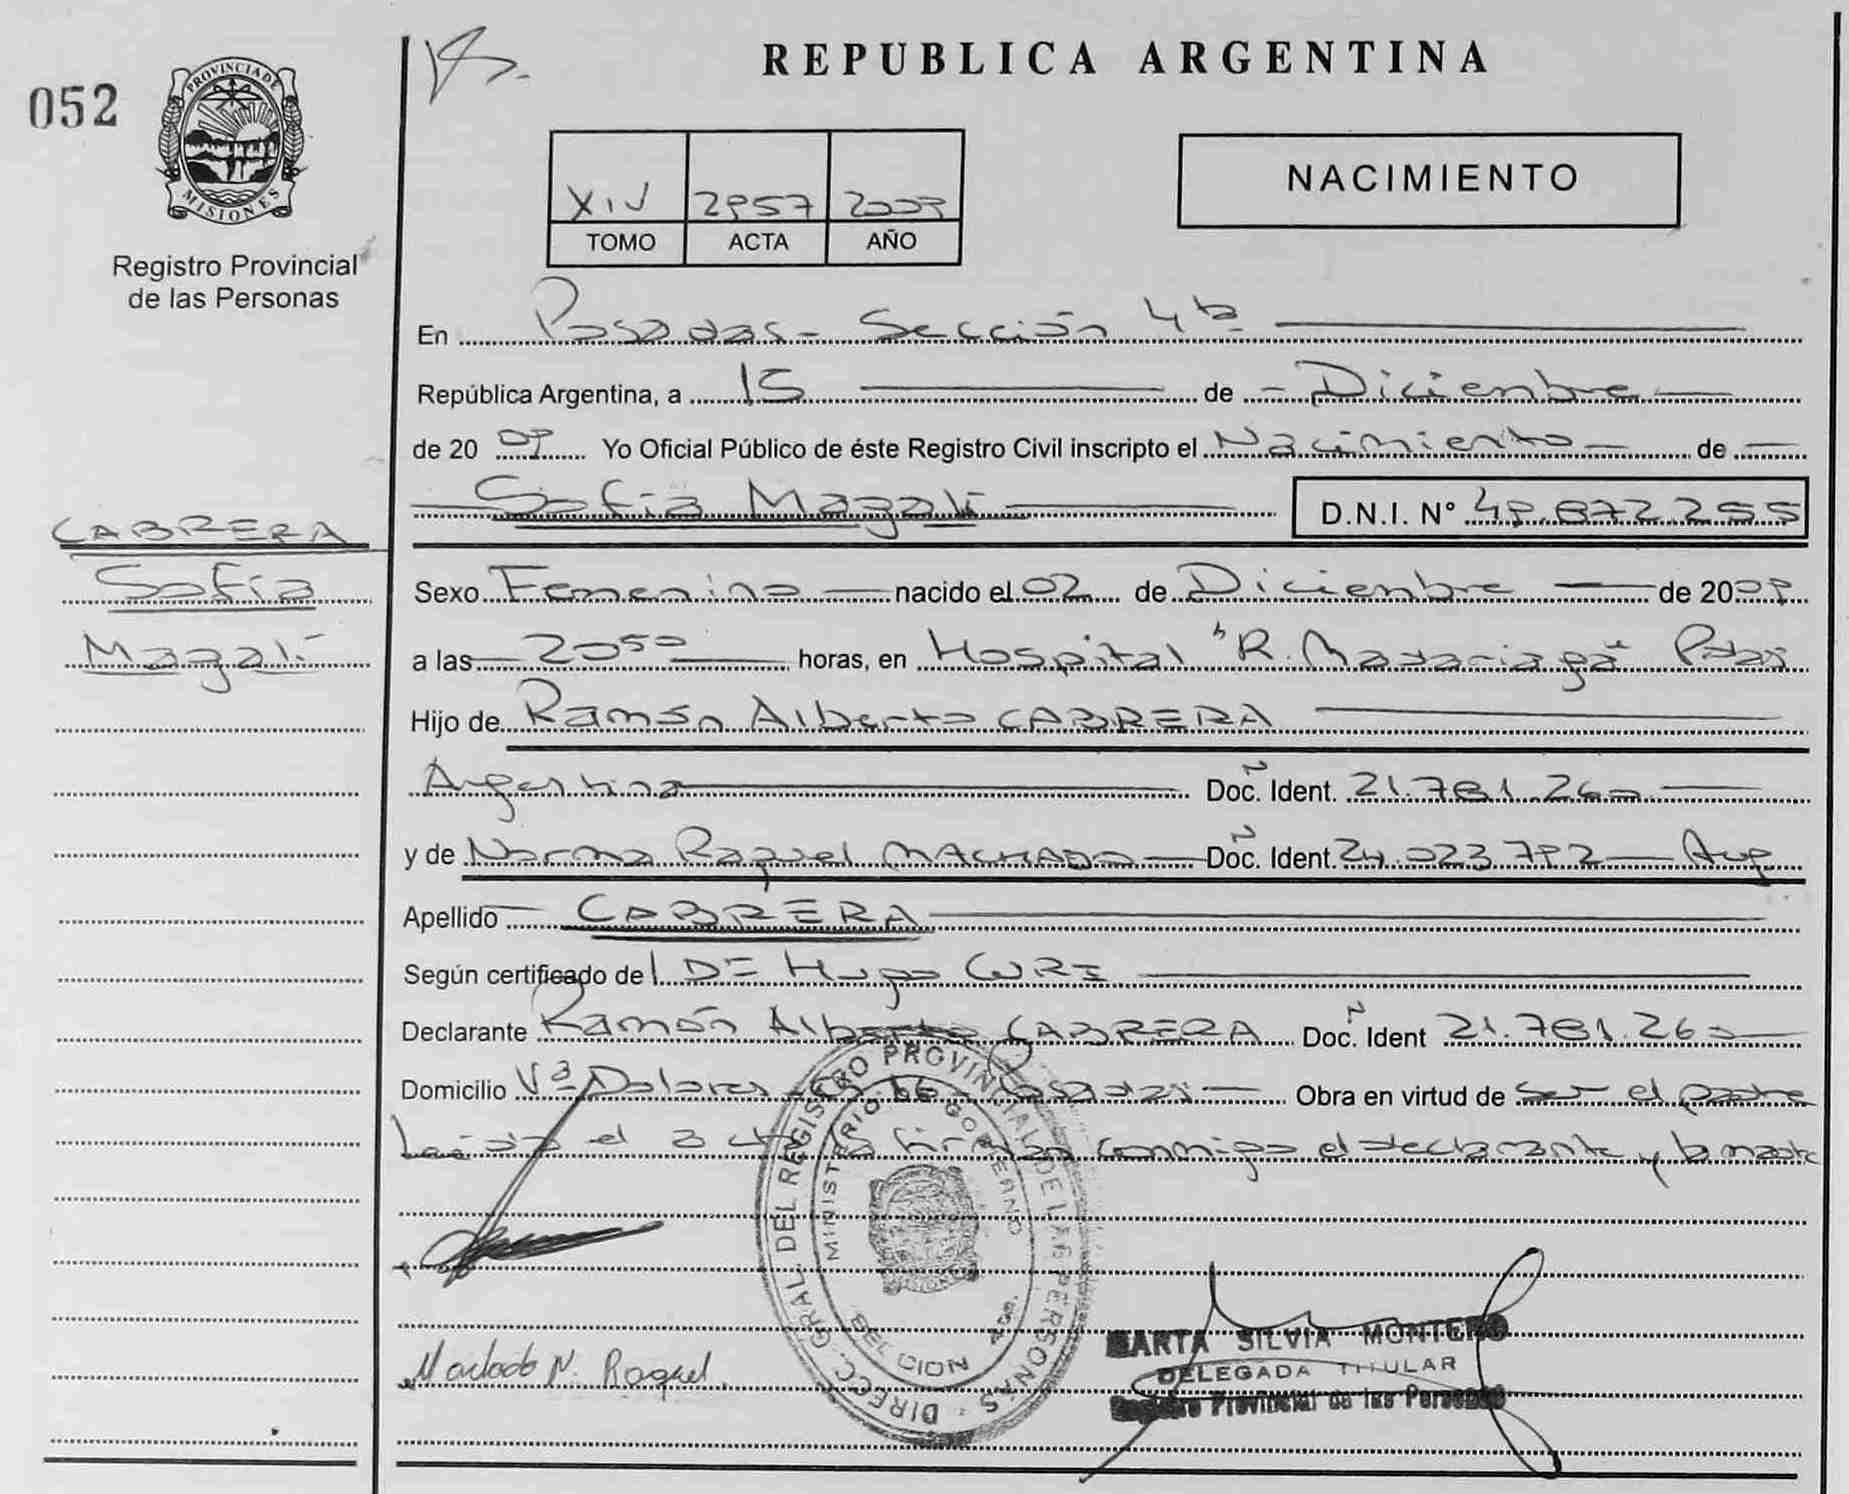 052
PROVINCIA DE
MISIONES
Registro Provincial
de las Personas
CABRERA
Sofía
Magalí
REPUBLICA ARGENTINA
XIV 2957 2009
TOMO ACTA AÑO
NACIMIENTO
En Posadas - Sección 4ta
República Argentina, a 15 de Diciembre
de 20 09 Yo Oficial Público de éste Registro Civil inscripto el Nacimiento de
Sofía Magalí D.N.I. N° 49.872.255
Sexo Femenino nacido el 02 de Diciembre de 2009
a las 20 50 horas, en Hospital "R. Madariaga" Pdas
Hijo de Ramón Alberto CABRERA
Argentina Doc. Ident. 21.781.260
y de Norma Raquel MACHADO Doc. Ident 24.023.792 Arg
Apellido CABRERA
Según certificado de DE Hugo
Declarante Ramón Alberto CABRERA Doc. Ident 21.781.260
Domicilio Vª Dolores 66 Posadas Obra en virtud de ser el padre
Leída el acta la firman conmigo el declarante y la madre
DIRECC. GRAL. DEL REGISTRO PROVINCIAL DE LAS PERSONAS
MINISTERIO DE GOBIERNO
Machado N. Raquel.
MARTA SILVIA MONTERO
DELEGADA TITULAR
Registro Provincial de las Personas